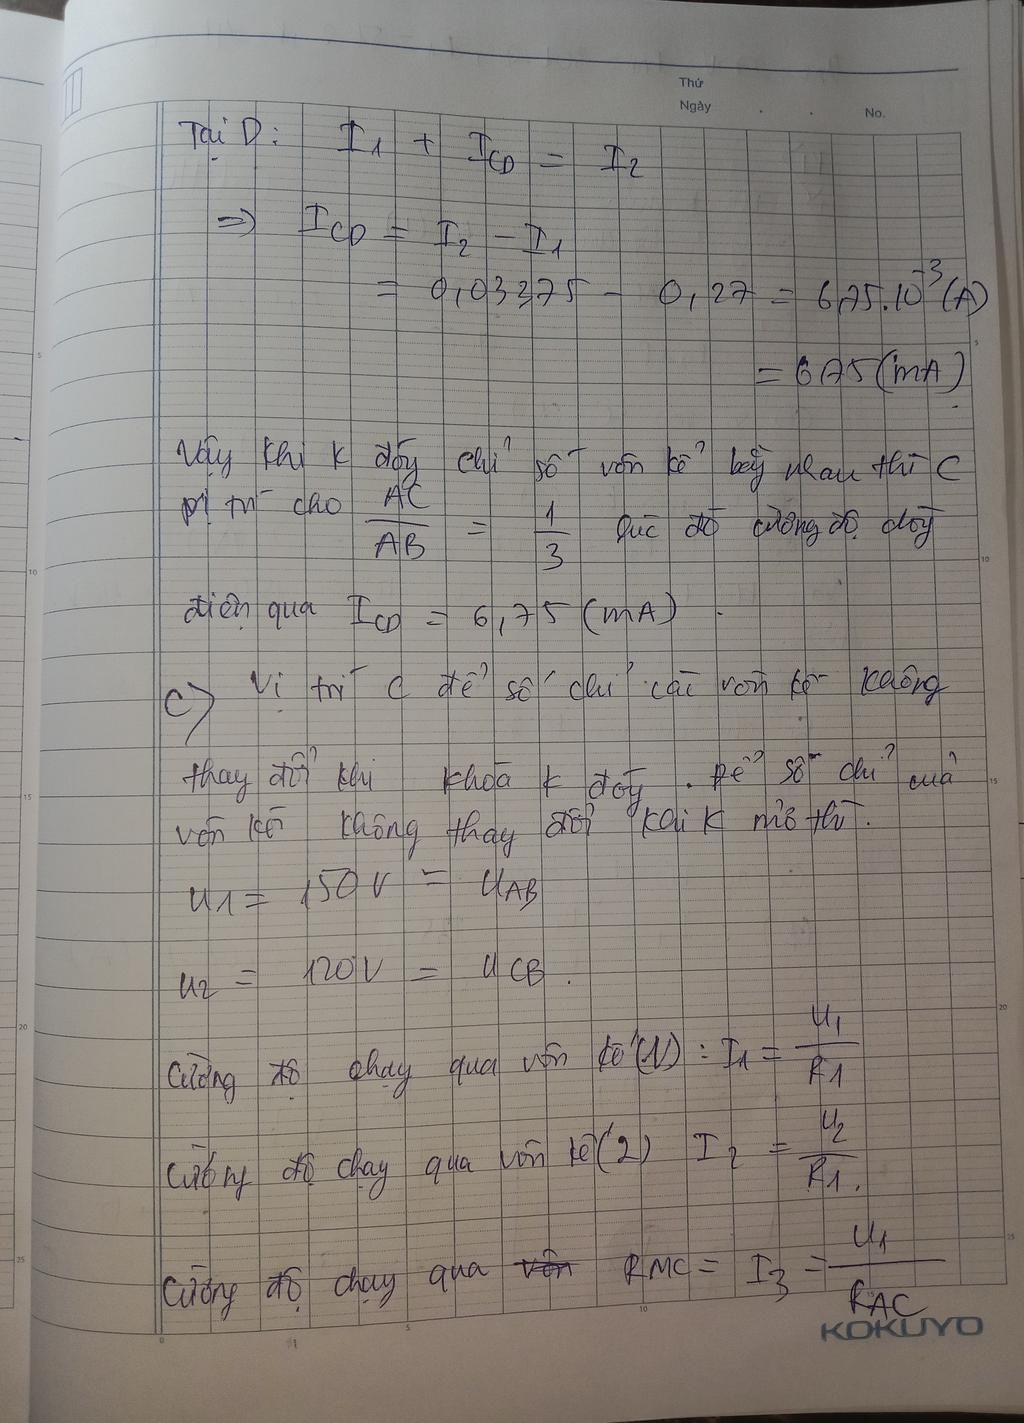 Thứ
Ngày . . No.
Tại D: I1 + ICD = I2
=> ICD = I2 - I1
= 0,03375 - 0,27 = 6,75.10^-3 (A)
= 6,75 (mA)
Vậy khi K đóng chỉ số vôn kế bằng nhau thì C
vị trí cho AC/AB = 1/3 lúc đó cường độ dòng
điện qua ICD = 6,75 (mA).
c) Vị trí C để số chỉ các vôn kế không
thay đổi khi khoá K đóng. Để số chỉ của
vôn kế không thay đổi khi K mở thì.
U1 = 150V = UAB
U2 = 120V = UCB.
Cường độ chạy qua vôn kế (1): I1 = U1/R1
Cường độ chạy qua vôn kế (2) I2 = U2/R1.
Cường độ chạy qua vôn RMC = I3 = U1/RAC
KOKUYO